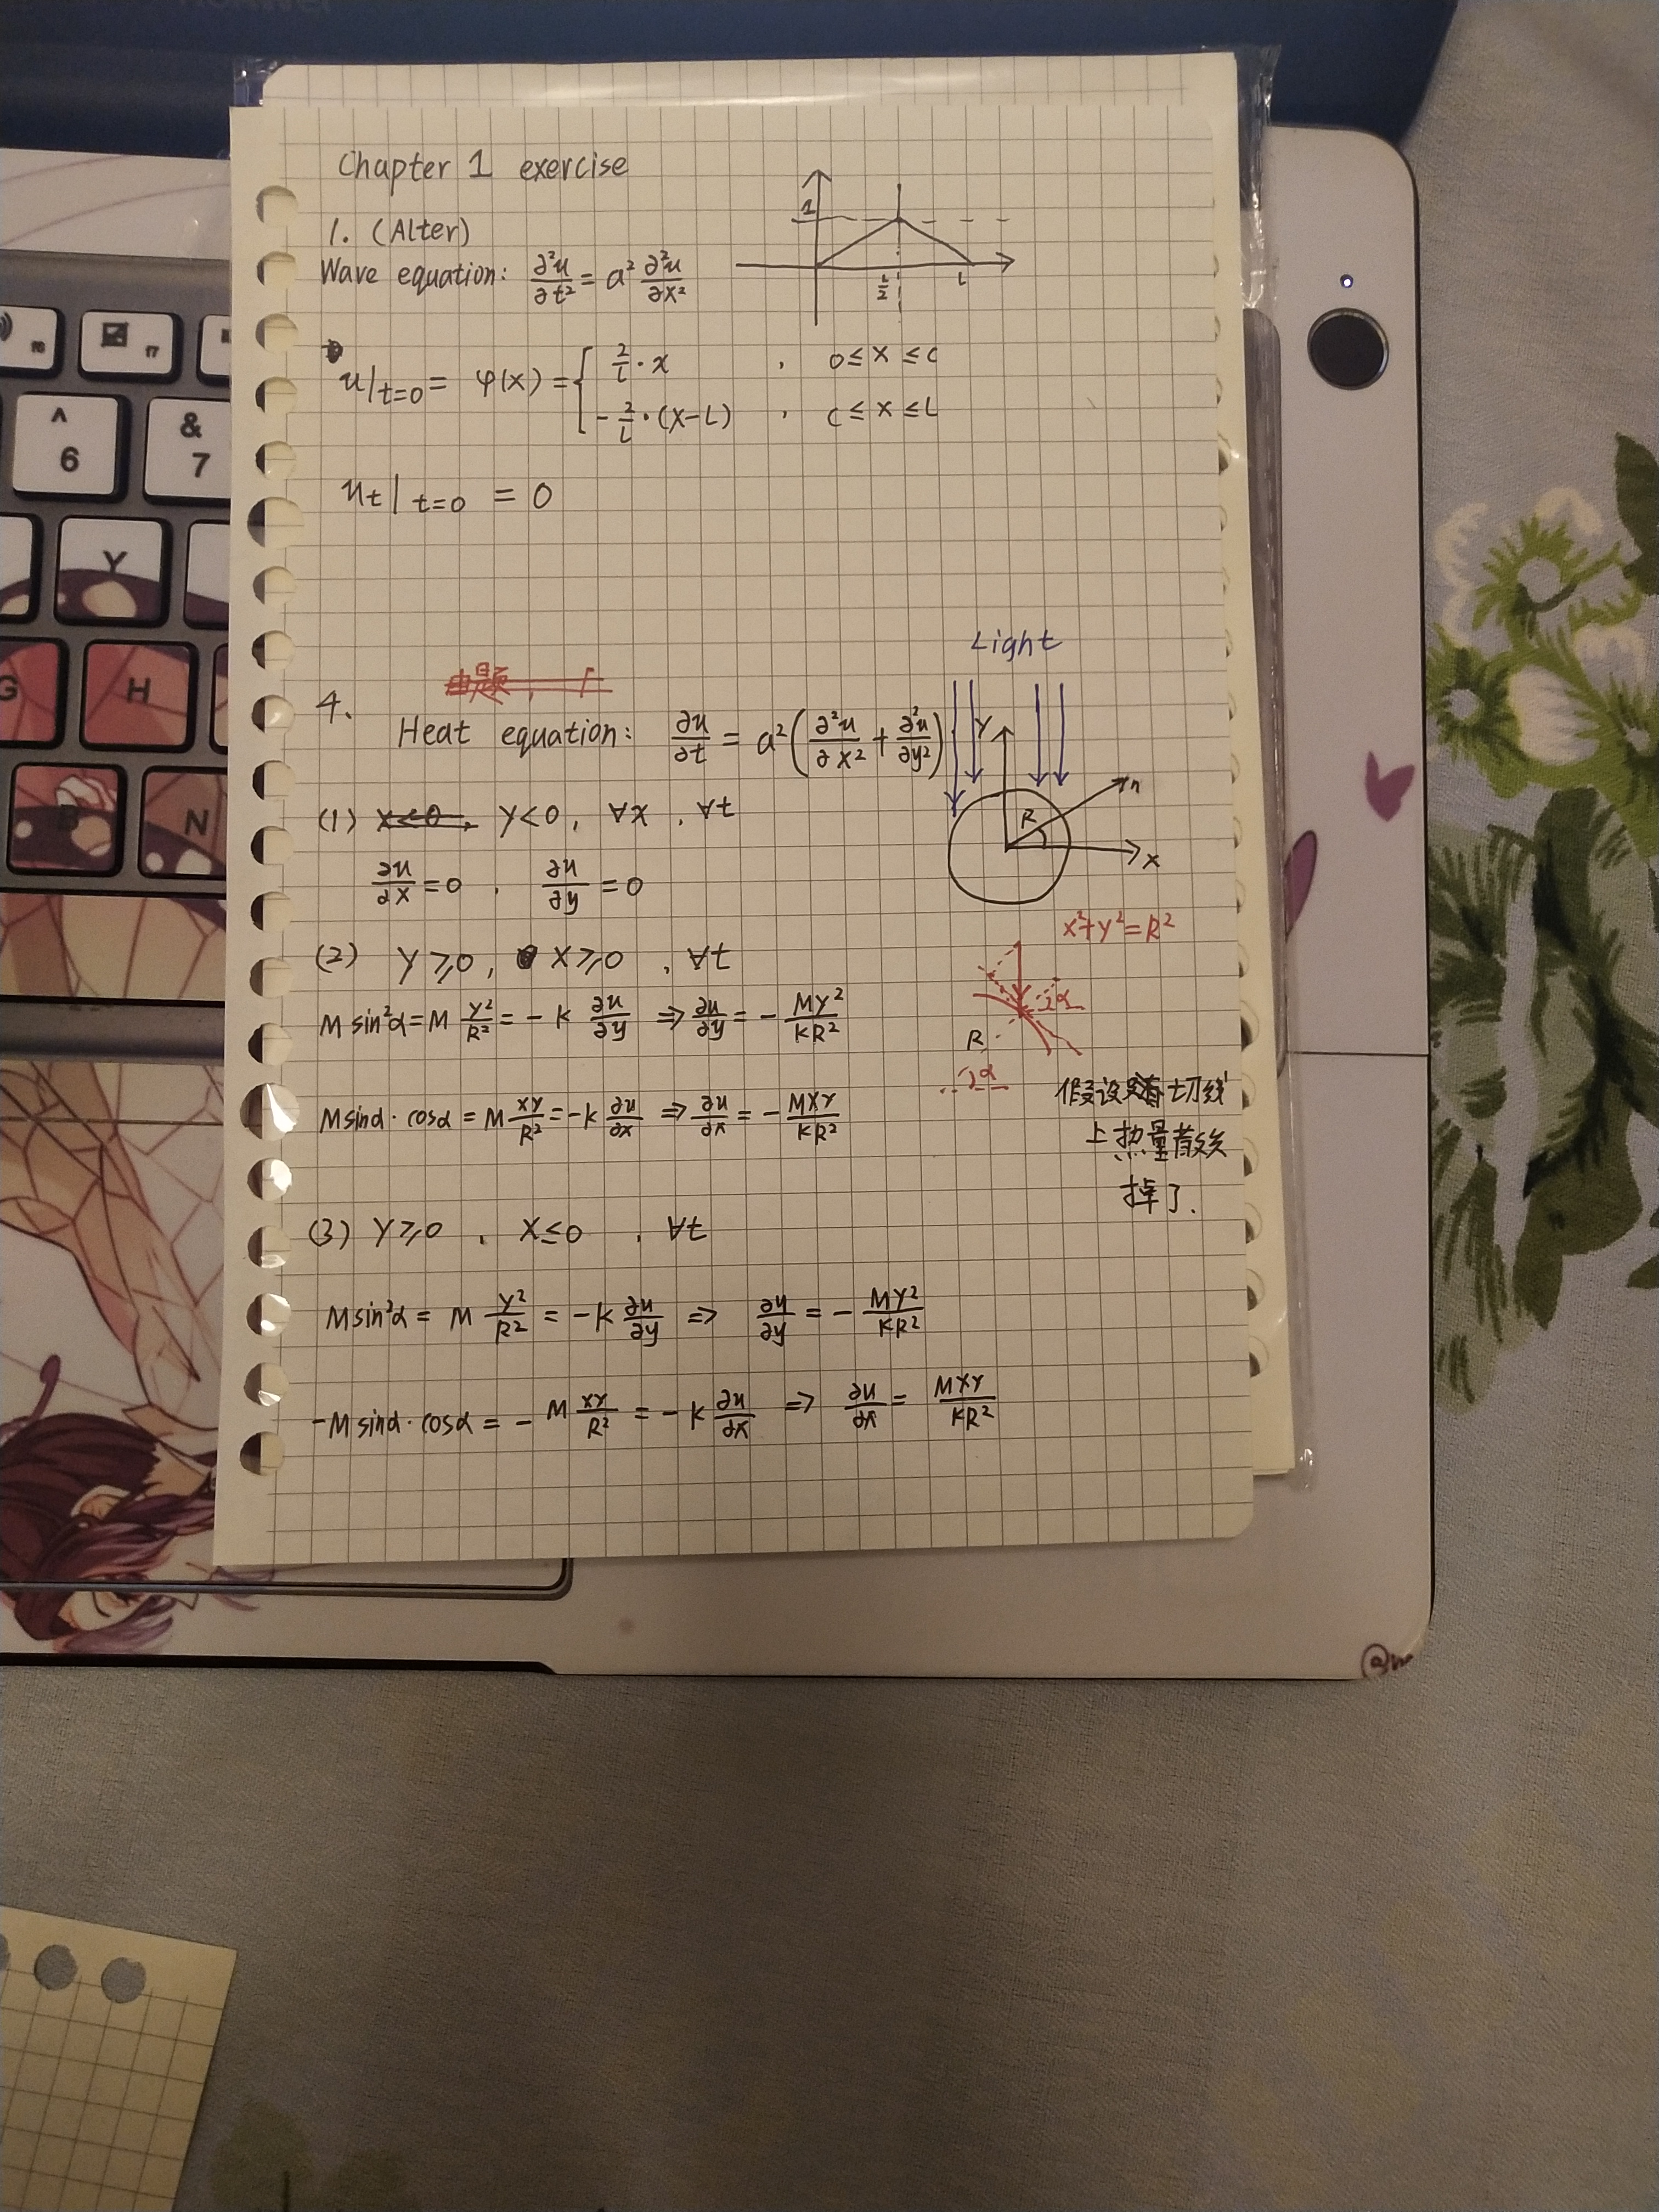 Chapter 1 exercise
1. (Alter)
Wave equation: ∂²u/∂t² = a² ∂²u/∂x²
1
L/2
L
u|t=0 = φ(x) = { 2/L · x , 0 ≤ x ≤ c
- 2/L · (x-L) , c ≤ x ≤ L
ut|t=0 = 0
Light
4.
Heat equation: ∂u/∂t = a² (∂²u/∂x² + ∂²u/∂y²)
Y
n
R
x
(1) x<0, y<0, ∀x, ∀t
∂u/∂x = 0 , ∂u/∂y = 0
x²+y²=R²
(2) y ≥ 0, x ≥ 0 , ∀t
M sin²α = M y²/R² = -k ∂u/∂y ⇒ ∂u/∂y = - My²/kR²
α
R
α
M sinα · cosα = M xy/R² = -k ∂u/∂x ⇒ ∂u/∂x = - Mxy/kR²
假设 切线
上热量散失
掉了.
(3) y ≥ 0 , x ≤ 0 , ∀t
M sin²α = M y²/R² = -k ∂u/∂y ⇒ ∂u/∂y = - My²/kR²
-M sinα · cosα = - M xy/R² = -k ∂u/∂x ⇒ ∂u/∂x = Mxy/kR²
^
6
&
7
Y
G
H
B
N
f7